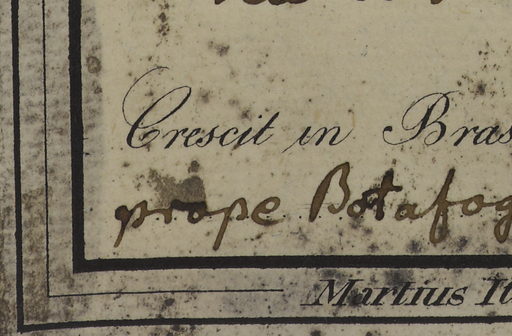 Crescit in Bras
prope Botafog
Martius It